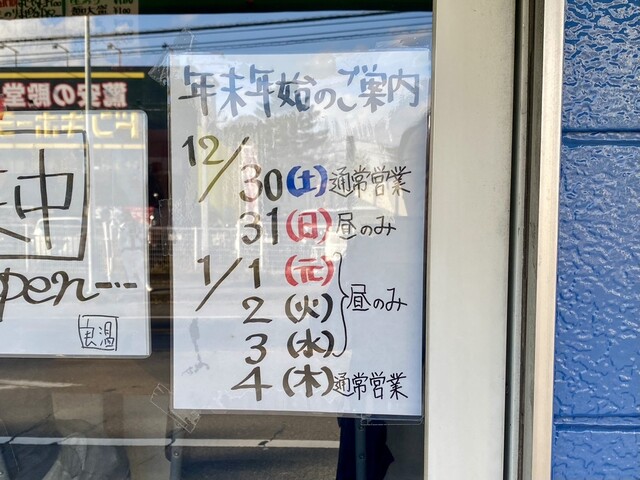 年末年始のご案内
12/30(土)通常営業
31(日)昼のみ
1/1(元)
2(火)昼のみ
3(水)
4(木)通常営業
中
pen…